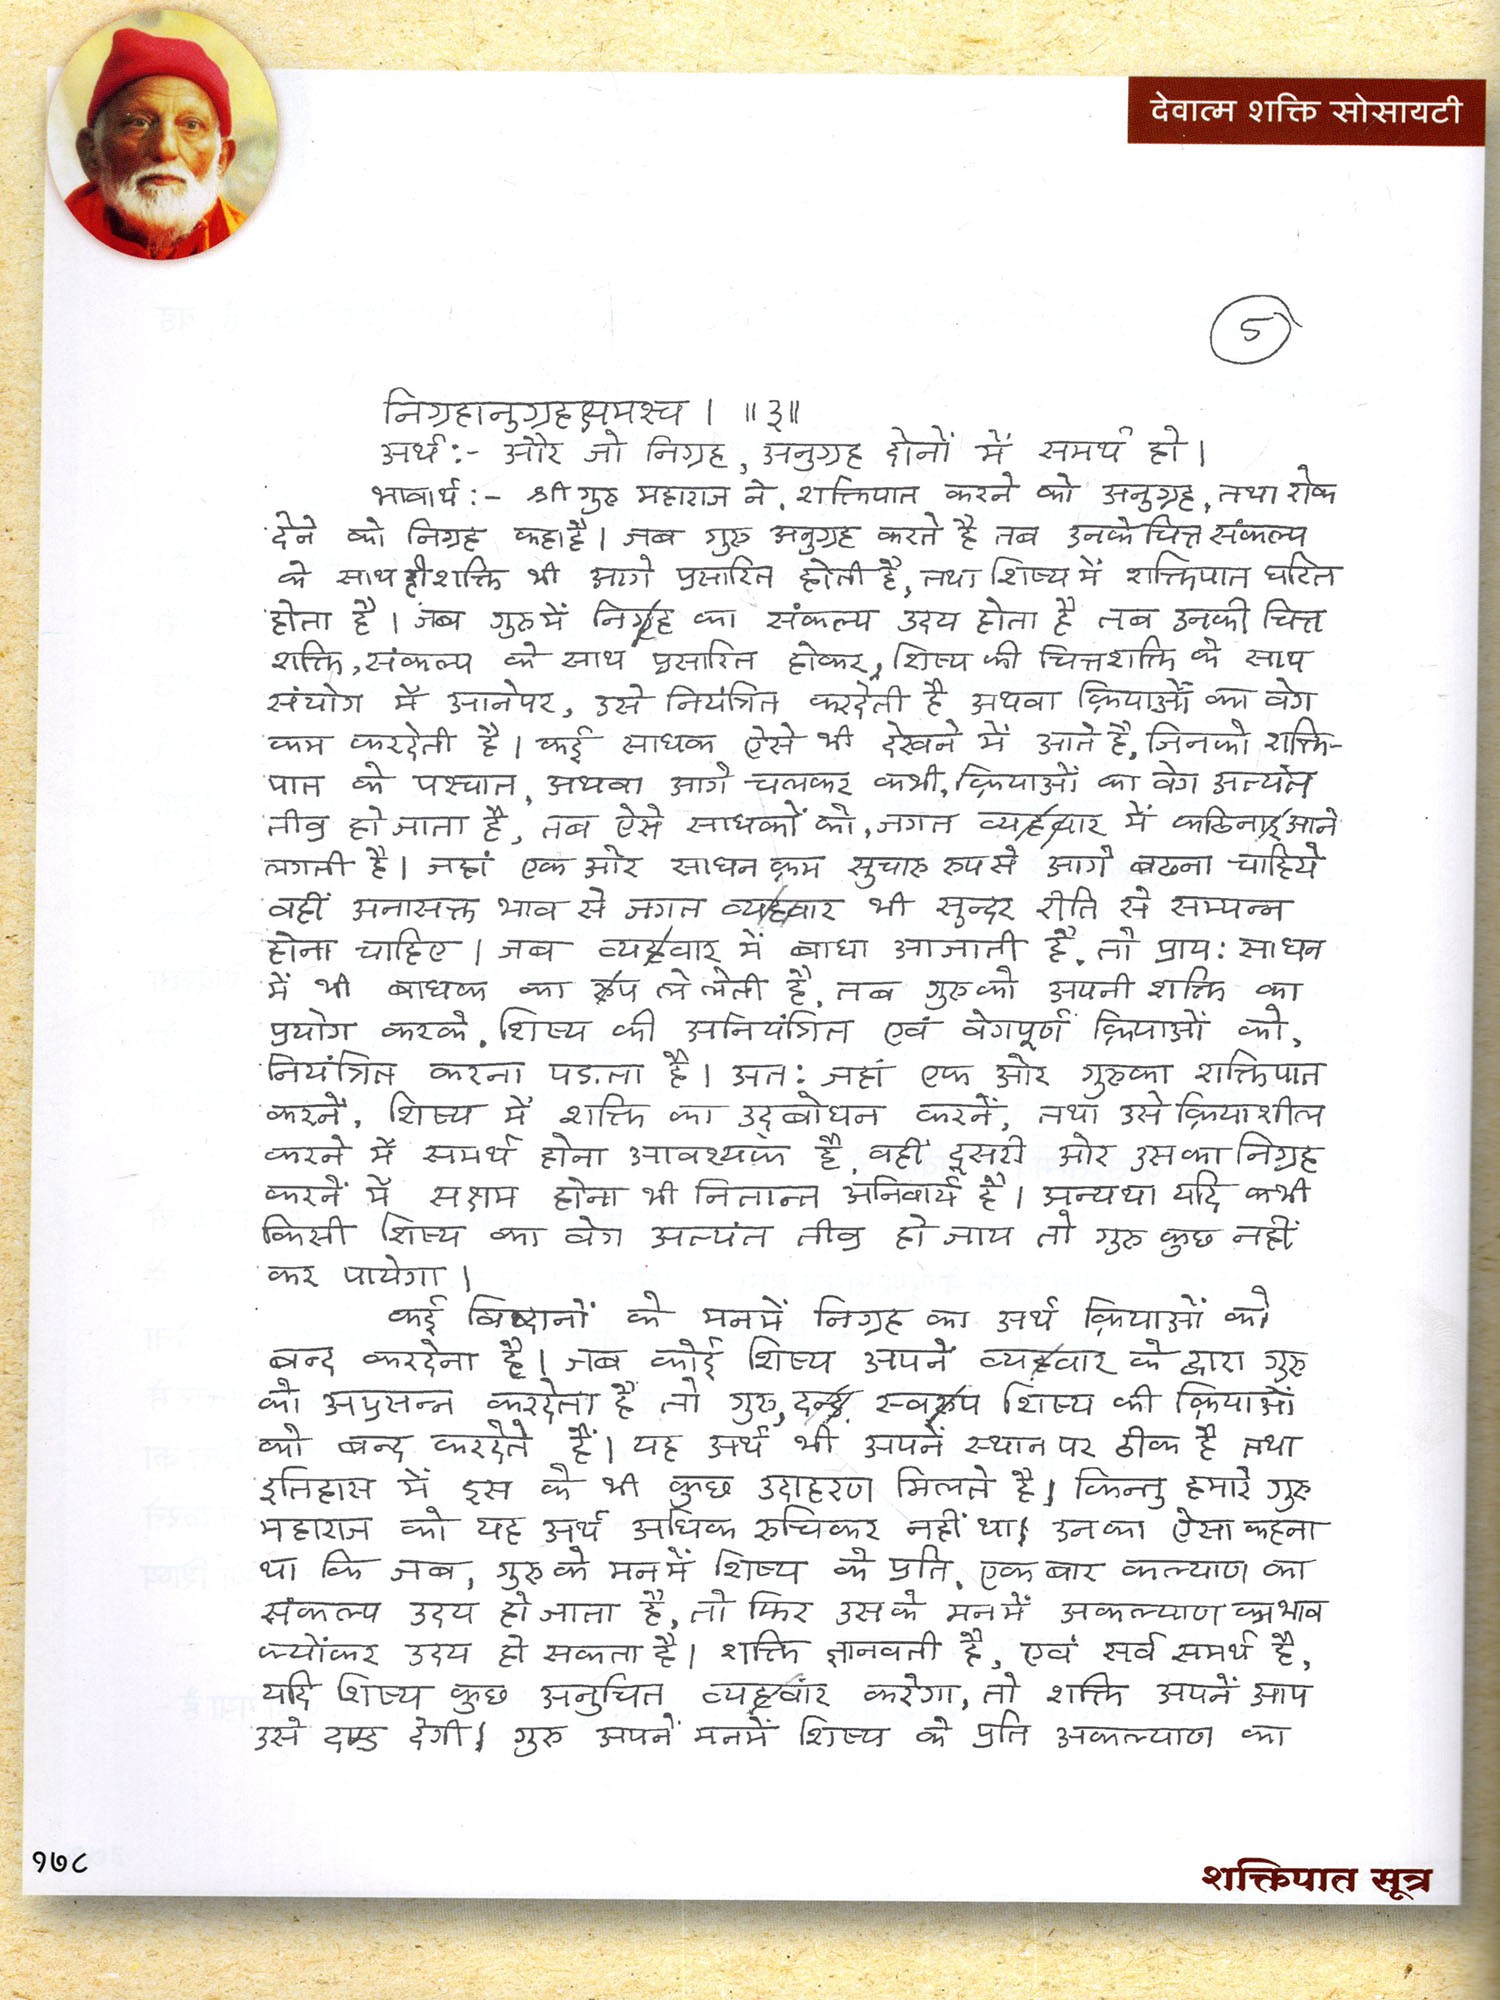 देवात्म शक्ति सोसायटी
5
निग्रहानुग्रहक्षमश्च । ॥३॥
अर्थ:- और जो निग्रह, अनुग्रह दोनों में समर्थ हो ।
भावार्थ:- श्री गुरु महाराज ने, शक्तिपात करने को अनुग्रह, तथा रोक
देने को निग्रह कहा है । जब गुरु अनुग्रह करते है तब उनके चित्त संकल्प
के साथ ही शक्ति भी आगे प्रसारित होती है, तथा शिष्य में शक्तिपात घटित
होता है । जब गुरु में निग्रह का संकल्प उदय होता है तब उनकी चित्त
शक्ति, संकल्प के साथ प्रसारित होकर, शिष्य की चित्तशक्ति के साथ
संयोग में आनेपर, उसे नियंत्रित करदेती है अथवा क्रियाओं का वेग
कम करदेती है । कई साधक ऐसे भी देखने में आते है, जिनको शक्ति-
पात के पश्चात, अथवा आगे चलकर कभी, क्रियाओं का वेग अत्यंत
तीव्र हो जाता है, तब ऐसे साधकों को, जगत व्यवहार में कठिनाई आने
लगती है । जहां एक ओर साधन क्रम सुचारु रुप से आगे बढना चाहिये
वहीं अनासक्त भाव से जगत व्यवहार भी सुन्दर रीति से सम्पन्न
होना चाहिए । जब व्यवहार में बाधा आजाती है, तो प्राय: साधन
में भी बाधक का रूप ले लेती है, तब गुरु को अपनी शक्ति का
प्रयोग करके, शिष्य की अनियंत्रित एवं वेगपूर्ण क्रियाओं को,
नियंत्रित करना पड़ता है । अत: जहां एक ओर गुरुका शक्तिपात
करनें, शिष्य में शक्ति का उद्बोधन करनें, तथा उसे क्रियाशील
करने में समर्थ होना आवश्यक है, वहीं दूसरी ओर उसका निग्रह
करनें में सक्षम होना भी नितान्त अनिवार्य है । अन्यथा यदि कभी
किसी शिष्य का वेग अत्यंत तीव्र हो जाय तो गुरु कुछ नहीं
कर पायेगा ।
कई विद्वानों के मनमें निग्रह का अर्थ क्रियाओं को
बन्द करदेना है । जब कोई शिष्य अपने व्यवहार के द्वारा गुरु
को अप्रसन्न करदेता है तो गुरु, दन्ड स्वरूप शिष्य की क्रियाओं
को बन्द करदेते हैं । यह अर्थ भी अपनें स्थान पर ठीक है तथा
इतिहास में इस के भी कुछ उदाहरण मिलते है । किन्तु हमारे गुरु
महाराज को यह अर्थ अधिक रुचिकर नहीं था । उनका ऐसा कहना
था कि जब, गुरु के मनमें शिष्य के प्रति, एक बार कल्याण का
संकल्प उदय हो जाता है, तो फिर उसके मनमें अकल्याण का भाव
क्योंकर उदय हो सकता है । शक्ति ज्ञानवती है, एवं सर्व समर्थ है,
यदि शिष्य कुछ अनुचित व्यवहार करेगा, तो शक्ति अपनें आप
उसे दण्ड देगी । गुरु अपनें मनमें शिष्य के प्रति अकल्याण का
१७८
शक्तिपात सूत्र